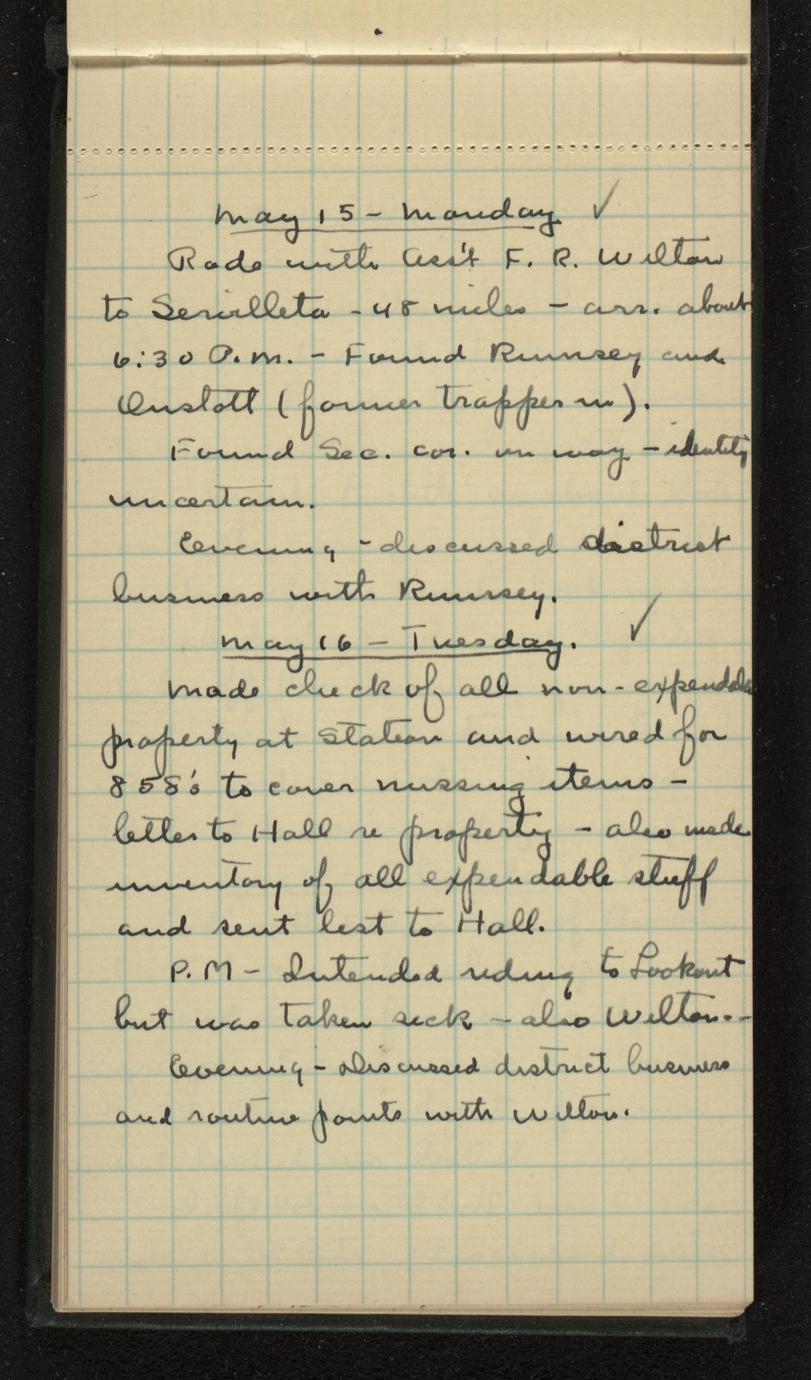 May 15 - Monday ✓
Rode with Ass't F. R. Wilton
to Servilleta - 48 miles - arr. about
6:30 P.M. - Found Rumsey and
Onstott (former trapper in).
Found Sec. cor. on way - identity
uncertain.
Evening - discussed district
business with Rumsey.
May 16 - Tuesday. ✓
Made check of all non-expendable
property at Station and wired for
858's to cover missing items -
letter to Hall re property - also made
inventory of all expendable stuff
and sent list to Hall.
P.M - Intended riding to Lookout
but was taken sick - also Wilton. -
Evening - Discussed district business
and routine points with Wilton.